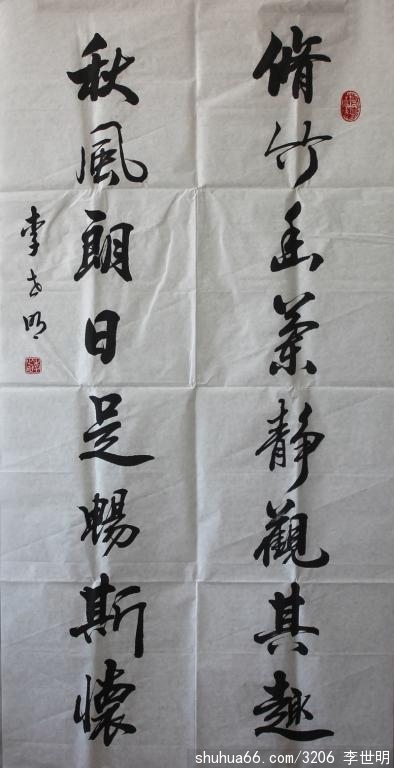 脩竹幽蘭靜觀其趣
秋風朗日足暢斯懷
李世明
shuhua66.com/3206 李世明